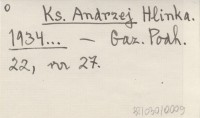 Ks. Andrzej Hlinka.
1934... — Gaz. Podh.
22, nr 27.